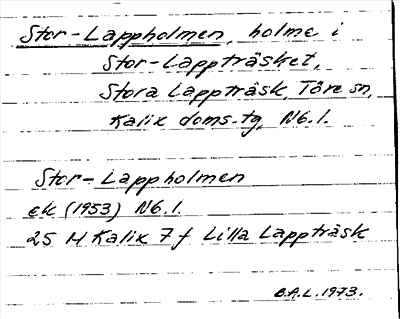 Stor-Lappholmen, holme i
Stor-Lappträsket,
Stora Lappträsk, Töre sn,
Kalix doms.tg, Nb.l.
Stor-Lappholmen
ek (1953) Nb.l.
25 M Kalix 7 f Lilla Lappträsk
B.A.L. 1973.